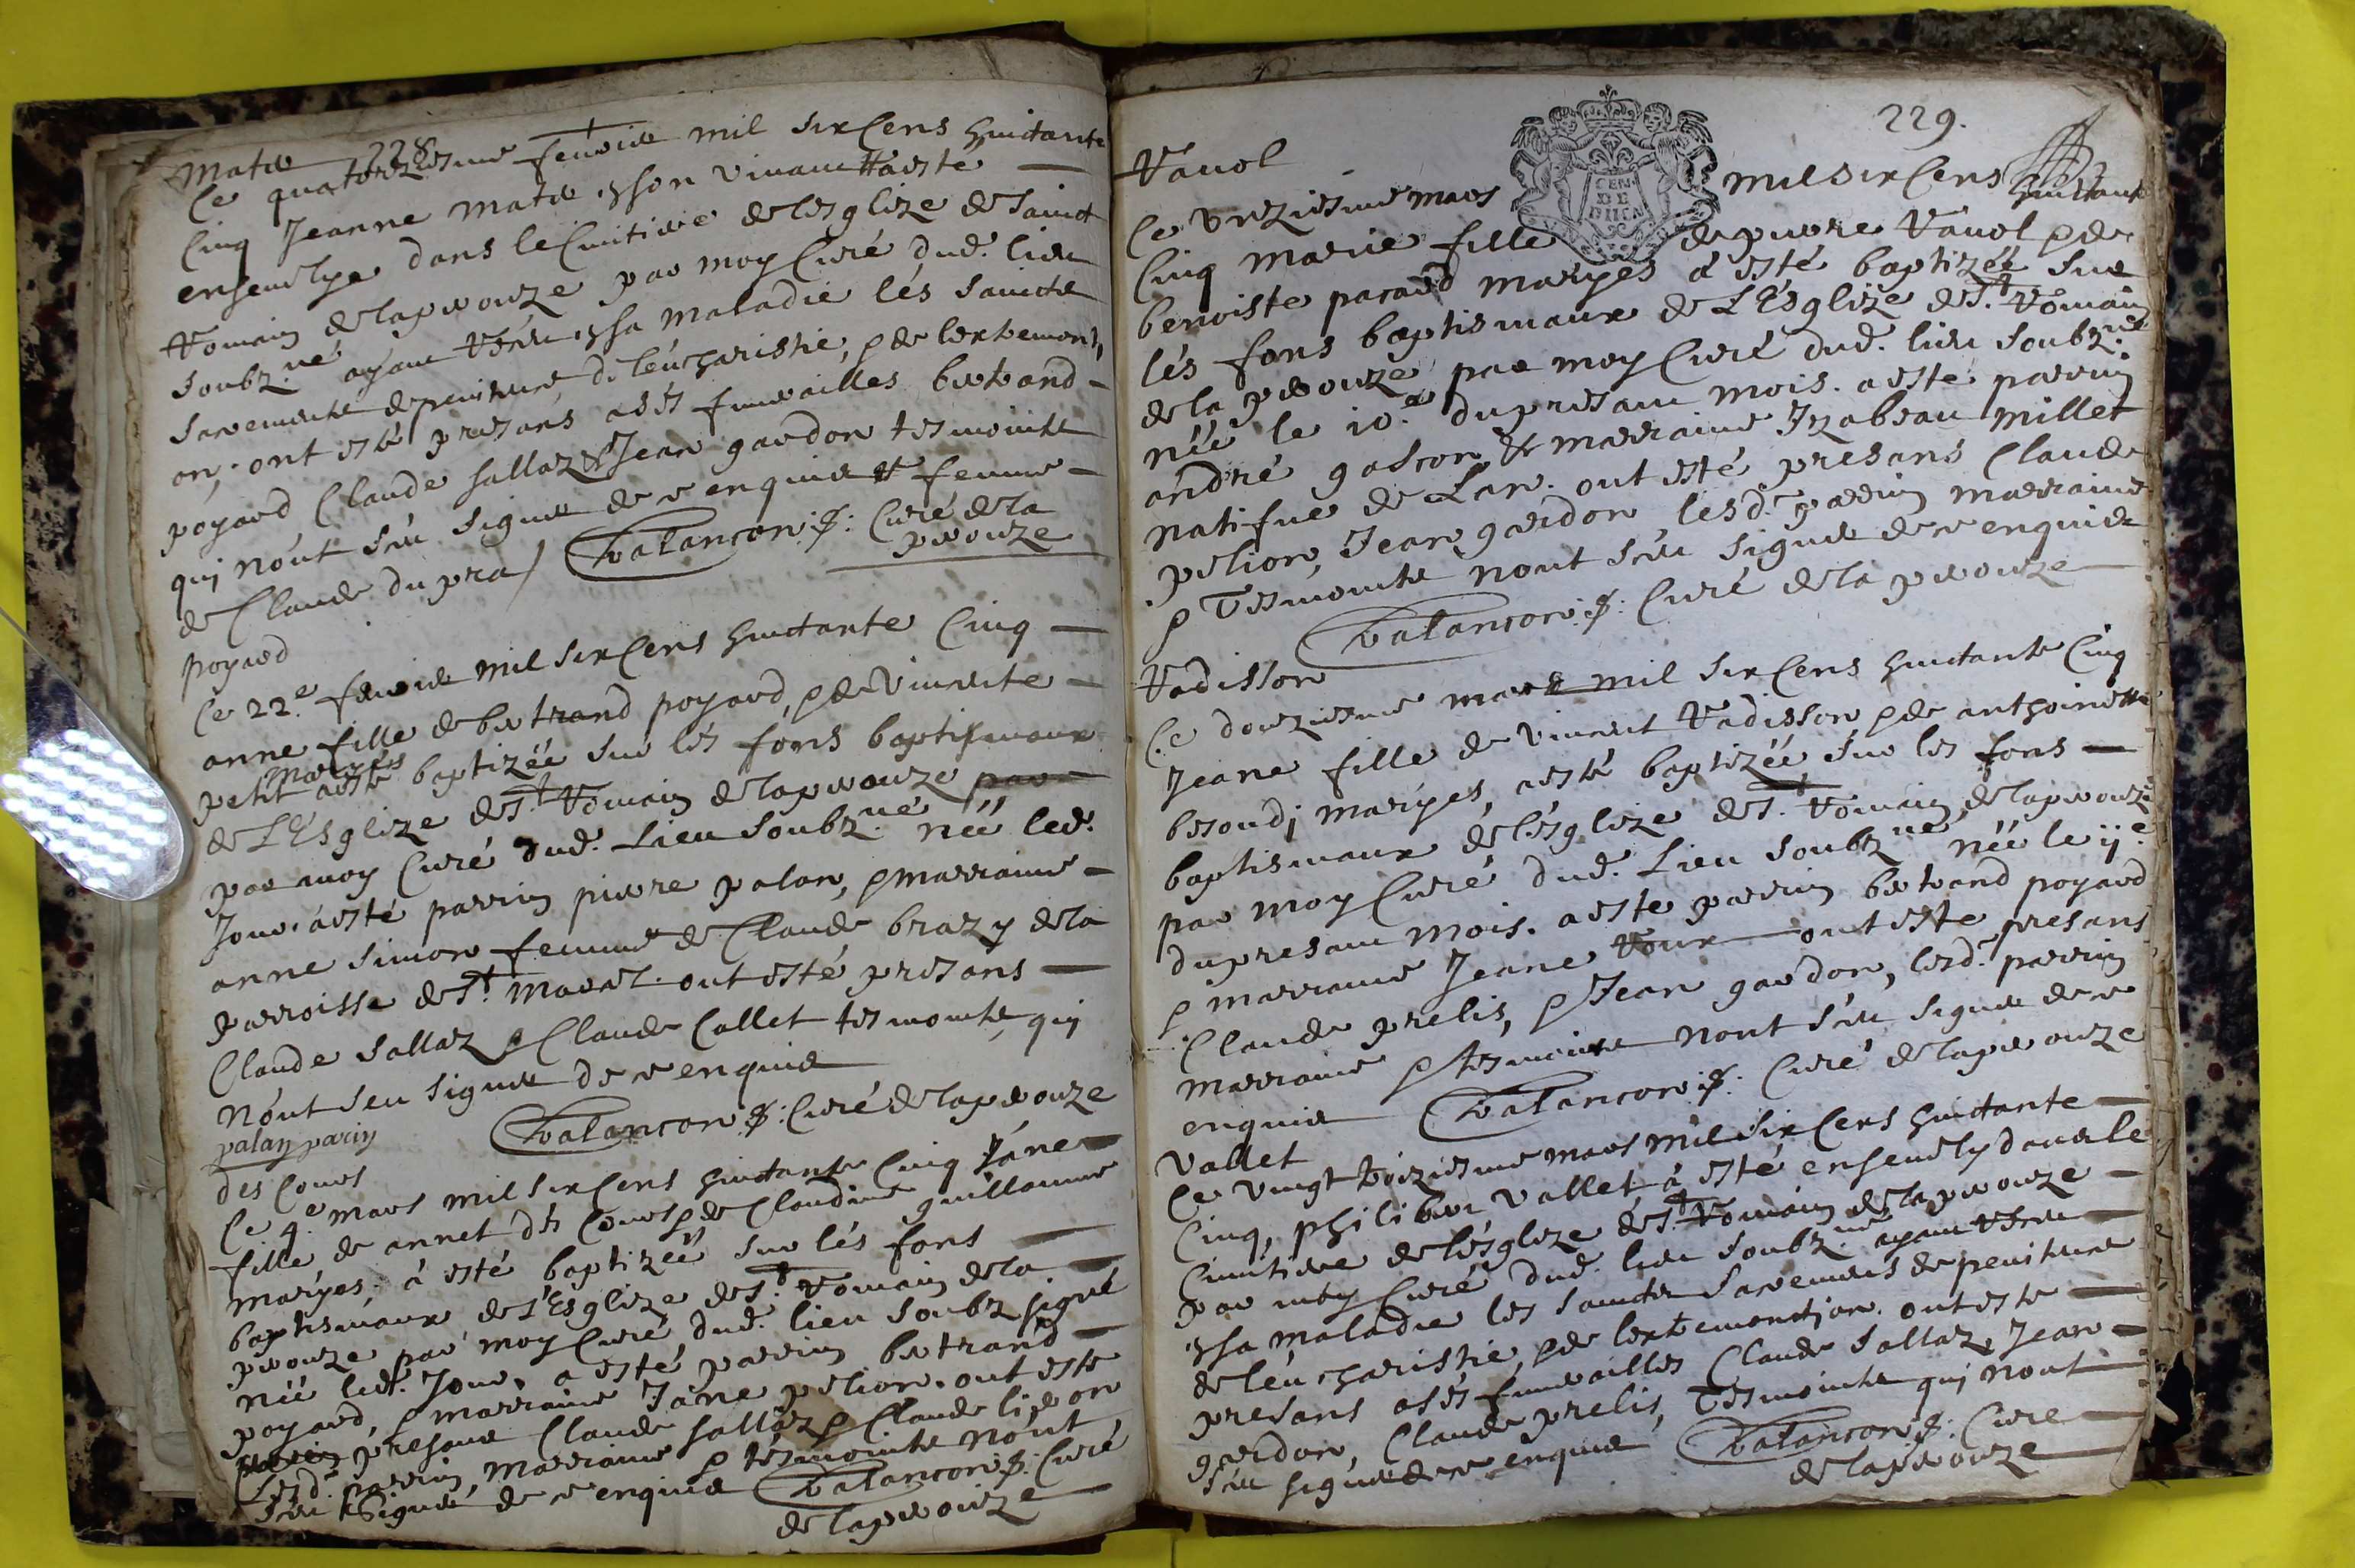 228
Matré
Ce quatorziesme feuvrier mil six Cens huictante
Cinq Jeanne Matré, à son vivant a esté
ensevelye dans le Cimitière de lesglize de Sainct
Romain de laperouze par moy Curé dud. lieu
Soubz.né ayant reseu, à sa maladie lés Saincts
Sacrements de penitence, de léucharistie, & de lextremonti
on, ont esté presans asés funerailles bertrand
poyard Claude Sallaz & Jean gardon tesmoints
qui nónt séu signer de ce enquis & femme
de Claude dupra / Balancon P: Curé de la
perouze
poyard
Ce 22.e feuvrier mil six Cens huictante Cinq
anne fille de bertrand poyard, & de Vincente
petit maryés aesté baptizéé sur lés fons baptismaux
de L'Esglize de St. Romain de laperouze par
par moy Curé dud. Lieu Soubz.né néé led.
Jour. áesté parrin pierre palan, & marraine
anne Simon femme de Claude brazy de la
parroisse de St. Marcel. ont esté présans
Claude Sallaz & Claude Callet tesmoints, qui
nónt seu signer de ce enquis
palan parin
Balancon P: Curé de laperouze
des Cours
Ce 4.e mars mil six Cens huictante Cinq Jáne
fille de annet dés Cours & de Claudine guillaume
maryes. à esté baptizéé sur lés fons
baptismaux de L'Esglize de St. Romain de la
perouze par moy Curé dud. lieu Soubz signé
néé led. Jour, a esté parrin bertrand
poyard, & marraine Jáne pelion. ont esté
presans Claude Sallaz & Claude
Lesd. parrin, marraine & tesmoints nónt
séu signer de ce enquis Balancon P: Curé
de laperouze
229.
Ravol
CEN
DE
DUCA
Ce Unziesme mars mil six Cens huictante
Cinq marie fille de pierre Ravol & de
benoiste paraud maryés à esté baptizéé sur
lés fons baptismaux de L'Esglize de St. Romain
de la perouze, par moy Curé dud. lieu Soubz.né
néé le 10.e du présant mois. aesté parrin
andré gascon & marraine Izabeau Millet
natifve de Lan. ont esté presans Claude
pelion, Jean gardon, lesd. parrin marraine
& Tesmoints nont séu signer de ce enquis
Balancon P: Curé de la perouze
Radisson
Ce douziesme mars mil six Cens huictante Cinq
Jeane fille de vincent Radisson & de anthoinette
besoudi maryes, aesté baptizéé sur les fons
baptismaux de lésglize de St. Romain de laperouze
par moy Curé dud. Lieu Soubz.né néé le ij.e
du presant mois. a esté parrin bertrand poyard
& marraine Jeane Roux ont esté presans
Claude prelis, & Jean gardon, lesd. parrin
marraine & tesmoints nont séu signer de ce
enquis Balancon P: Curé de laperouze
Vallet
Ce vingt troiziesme mars mil six Cens huictante
Cinq, philibert vallet à esté ensevely dans le
Cimitière de lésglize de St. Romain de la perouze
par moy Curé dud. lieu Soubz.né ayant reseu
à sa maladie les saincts Sacremens de penitence
de léucharistie, & de lextremonction. ont esté
presans asés funerailles Claude Sallaz, Jean
gardon, Claude prelis, Tesmoints qui nont
séu signer de ce enquis Balancon P: Curé
de laperouze